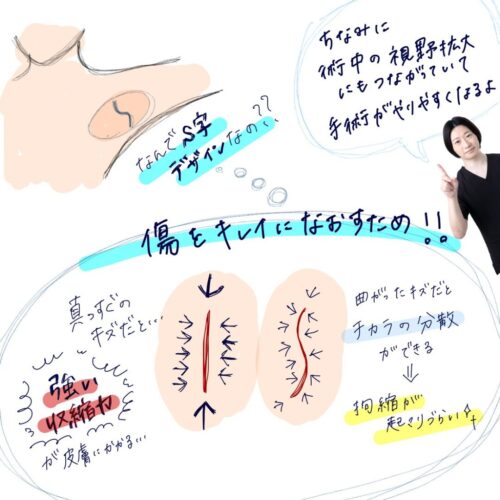 ちなみに
術中の視野拡大
にもつながっていて
手術がやりやすくなるよ
なんでS字
デザインなの??
傷をキレイになおすため!!
真っすぐの
キズだと…
強い
収縮力
が皮膚にかかる…
曲がったキズだと
チカラの分散
ができる
⇓
拘縮が
起こりづらい